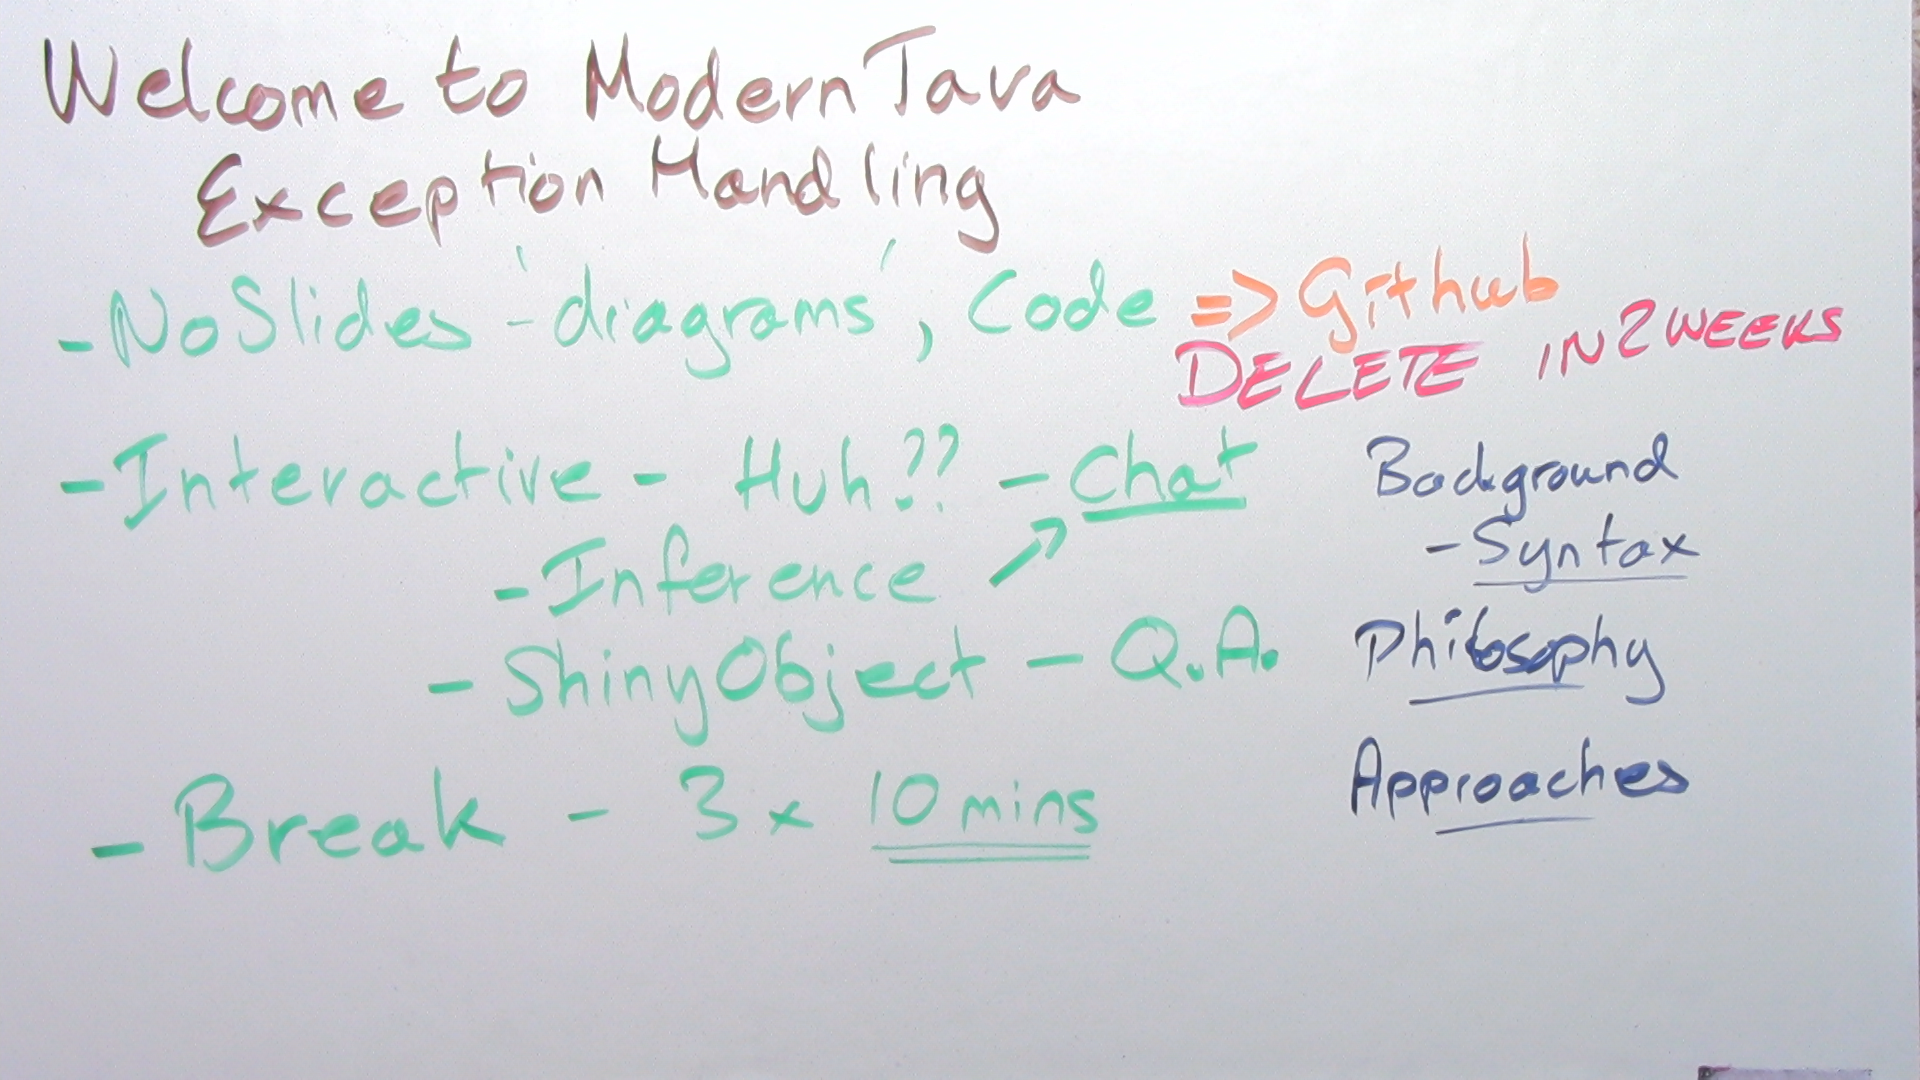 Welcome to Modern Java
Exception Handling
- No Slides - 'diagrams', Code => Github
DELETE IN 2 WEEKS
- Interactive - Huh?? - Chat
- Inference ↗
- Shiny Object - Q.A.
- Break - 3 x 10 mins
Background
- Syntax
Philosophy
Approaches